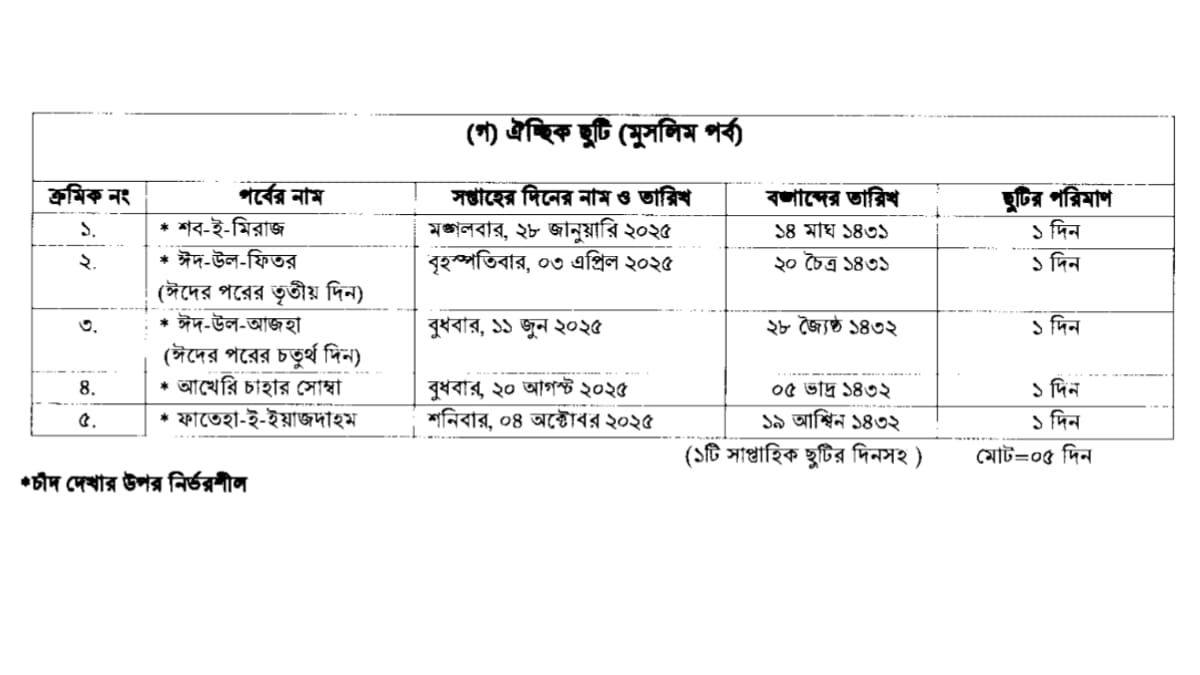 (গ) ঐচ্ছিক ছুটি (মুসলিম পর্ব)
ক্রমিক নং পর্বের নাম সপ্তাহের দিনের নাম ও তারিখ বঙ্গাব্দের তারিখ ছুটির পরিমাণ
১. * শব-ই-মিরাজ মঙ্গলবার, ২৮ জানুয়ারি ২০২৫ ১৪ মাঘ ১৪৩১ ১ দিন
২. * ঈদ-উল-ফিতর বৃহস্পতিবার, ০৩ এপ্রিল ২০২৫ ২০ চৈত্র ১৪৩১ ১ দিন
(ঈদের পরের তৃতীয় দিন)
৩. * ঈদ-উল-আজহা বুধবার, ১১ জুন ২০২৫ ২৮ জ্যৈষ্ঠ ১৪৩২ ১ দিন
(ঈদের পরের চতুর্থ দিন)
৪. * আখেরি চাহার সোম্বা বুধবার, ২০ আগস্ট ২০২৫ ০৫ ভাদ্র ১৪৩২ ১ দিন
৫. * ফাতেহা-ই-ইয়াজদাহম শনিবার, ০৪ অক্টোবর ২০২৫ ১৯ আশ্বিন ১৪৩২ ১ দিন
(১টি সাপ্তাহিক ছুটির দিনসহ ) মোট=০৫ দিন
*চাঁদ দেখার উপর নির্ভরশীল